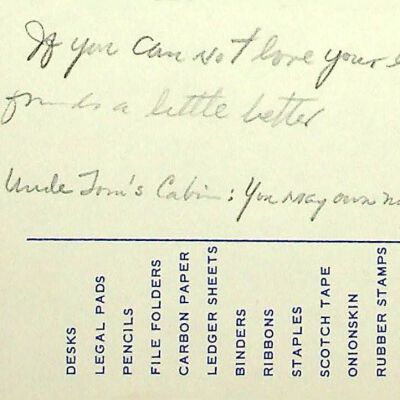 If you can not love your
friends a little better
Uncle Tom's Cabin: You may own
DESKS
LEGAL PADS
PENCILS
FILE FOLDERS
CARBON PAPER
LEDGER SHEETS
BINDERS
RIBBONS
STAPLES
SCOTCH TAPE
ONIONSKIN
RUBBER STAMPS